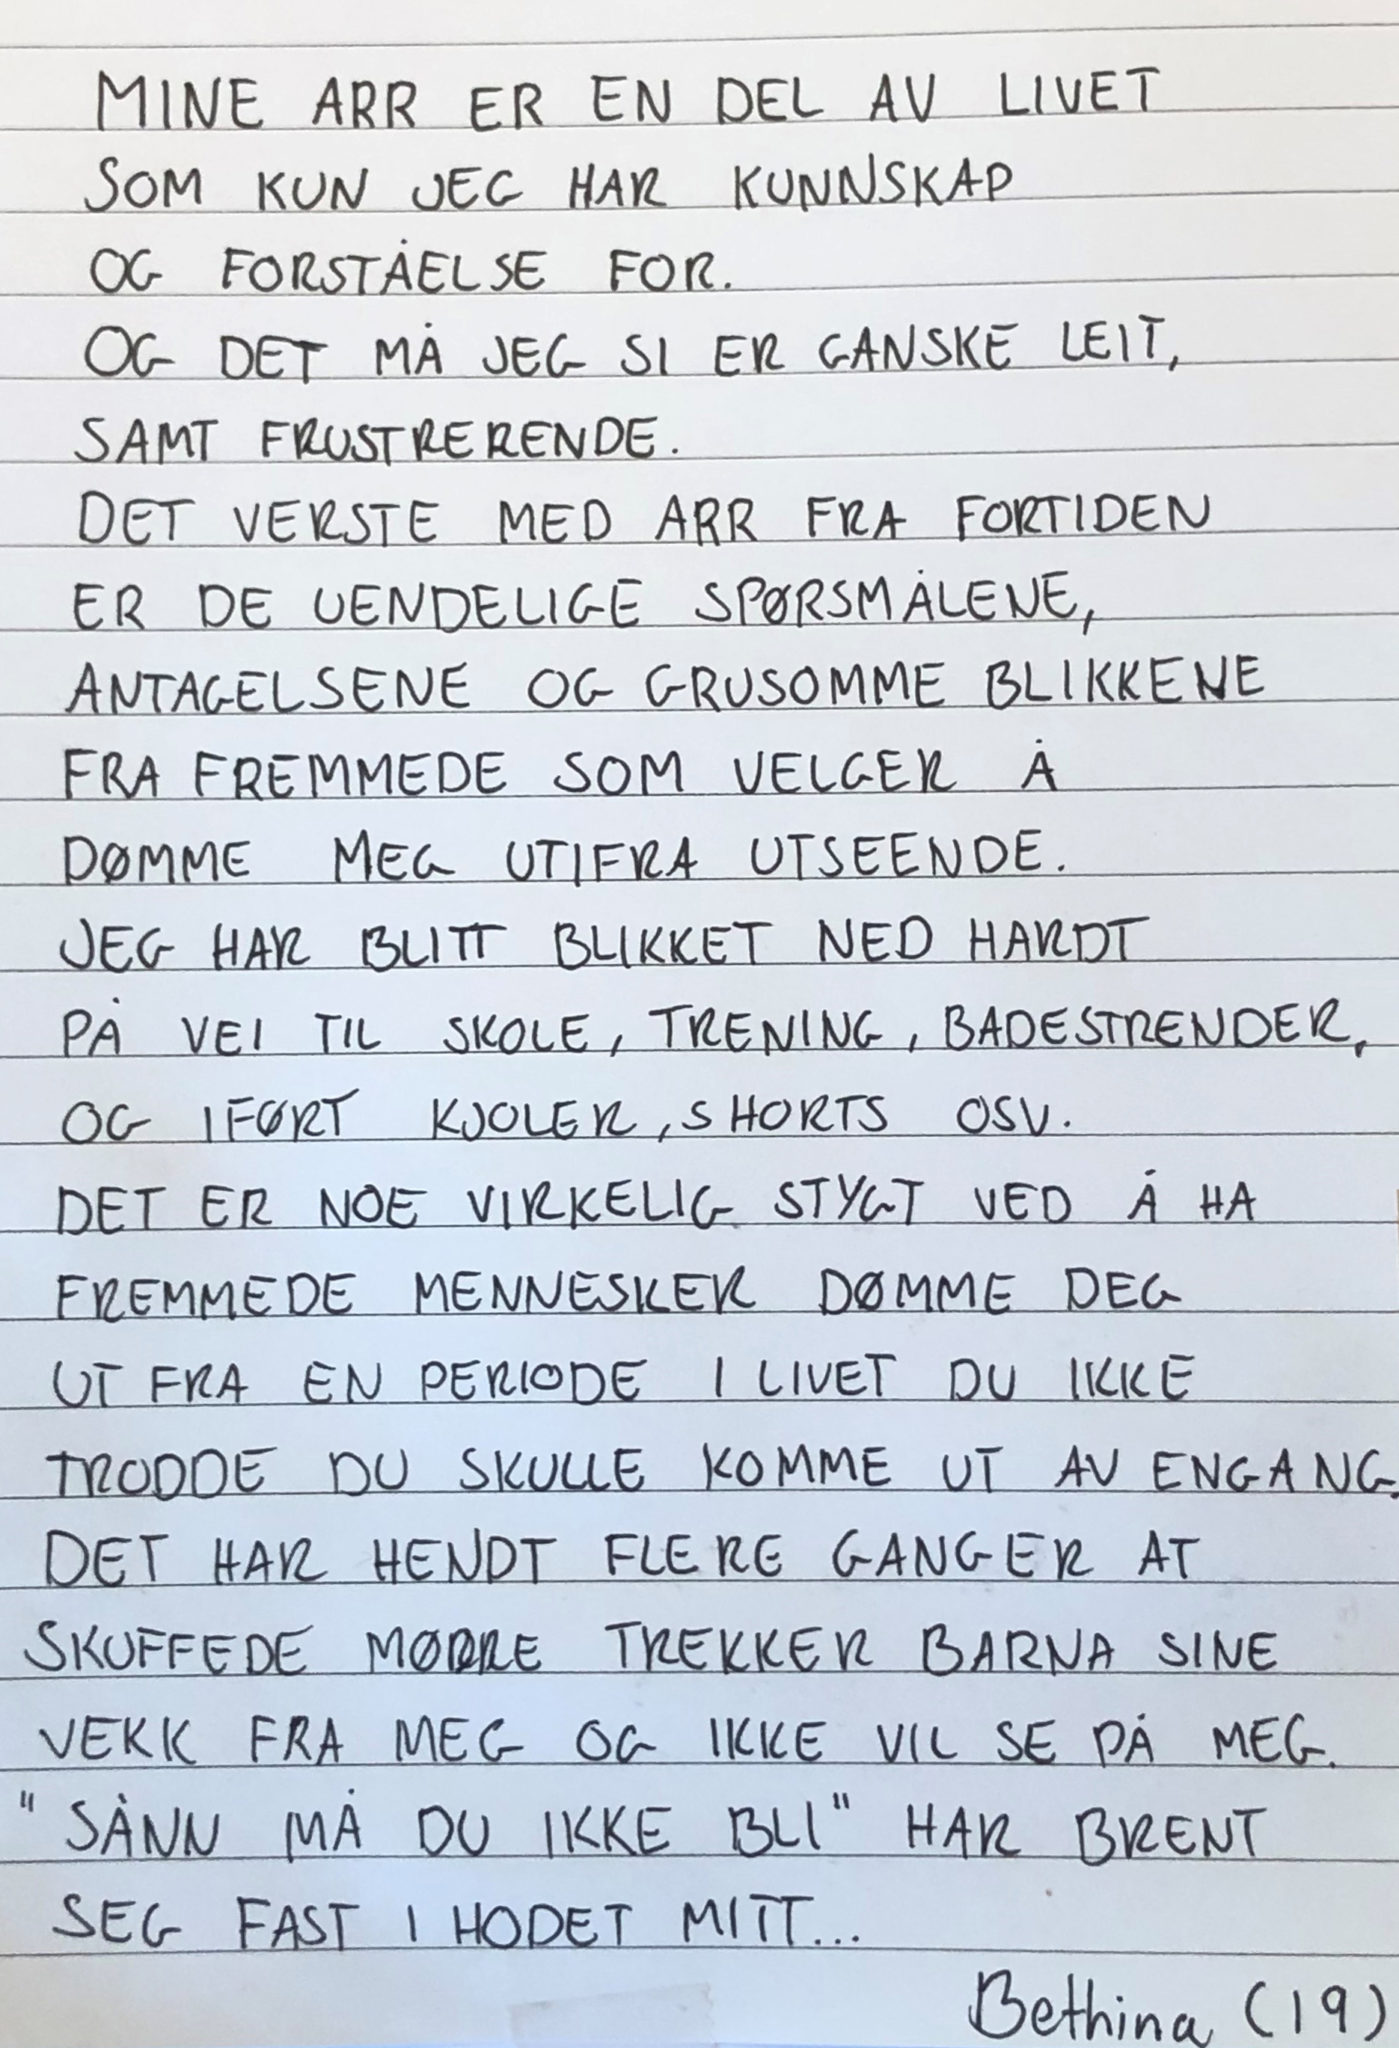 MINE ARR ER EN DEL AV LIVET
SOM KUN JEG HAR KUNNSKAP
OG FORSTÅELSE FOR.
OG DET MÅ JEG SI ER GANSKE LEIT,
SAMT FRUSTRERENDE.
DET VERSTE MED ARR FRA FORTIDEN
ER DE UENDELIGE SPØRSMÅLENE,
ANTAGELSENE OG GRUSOMME BLIKKENE
FRA FREMMEDE SOM VELGER Å
DØMME MEG UTIFRA UTSEENDE.
JEG HAR BLITT BLIKKET NED HARDT
PÅ VEI TIL SKOLE, TRENING, BADESTRENDER,
OG IFØRT KJOLER, SHORTS OSV.
DET ER NOE VIRKELIG STYGT VED Å HA
FREMMEDE MENNESKER DØMME DEG
UT FRA EN PERIODE I LIVET DU IKKE
TRODDE DU SKULLE KOMME UT AV ENGANG.
DET HAR HENDT FLERE GANGER AT
SKUFFEDE MØDRE TREKKER BARNA SINE
VEKK FRA MEG OG IKKE VIL SE PÅ MEG.
"SÅNN MÅ DU IKKE BLI" HAR BRENT
SEG FAST I HODET MITT...
Bethina (19)